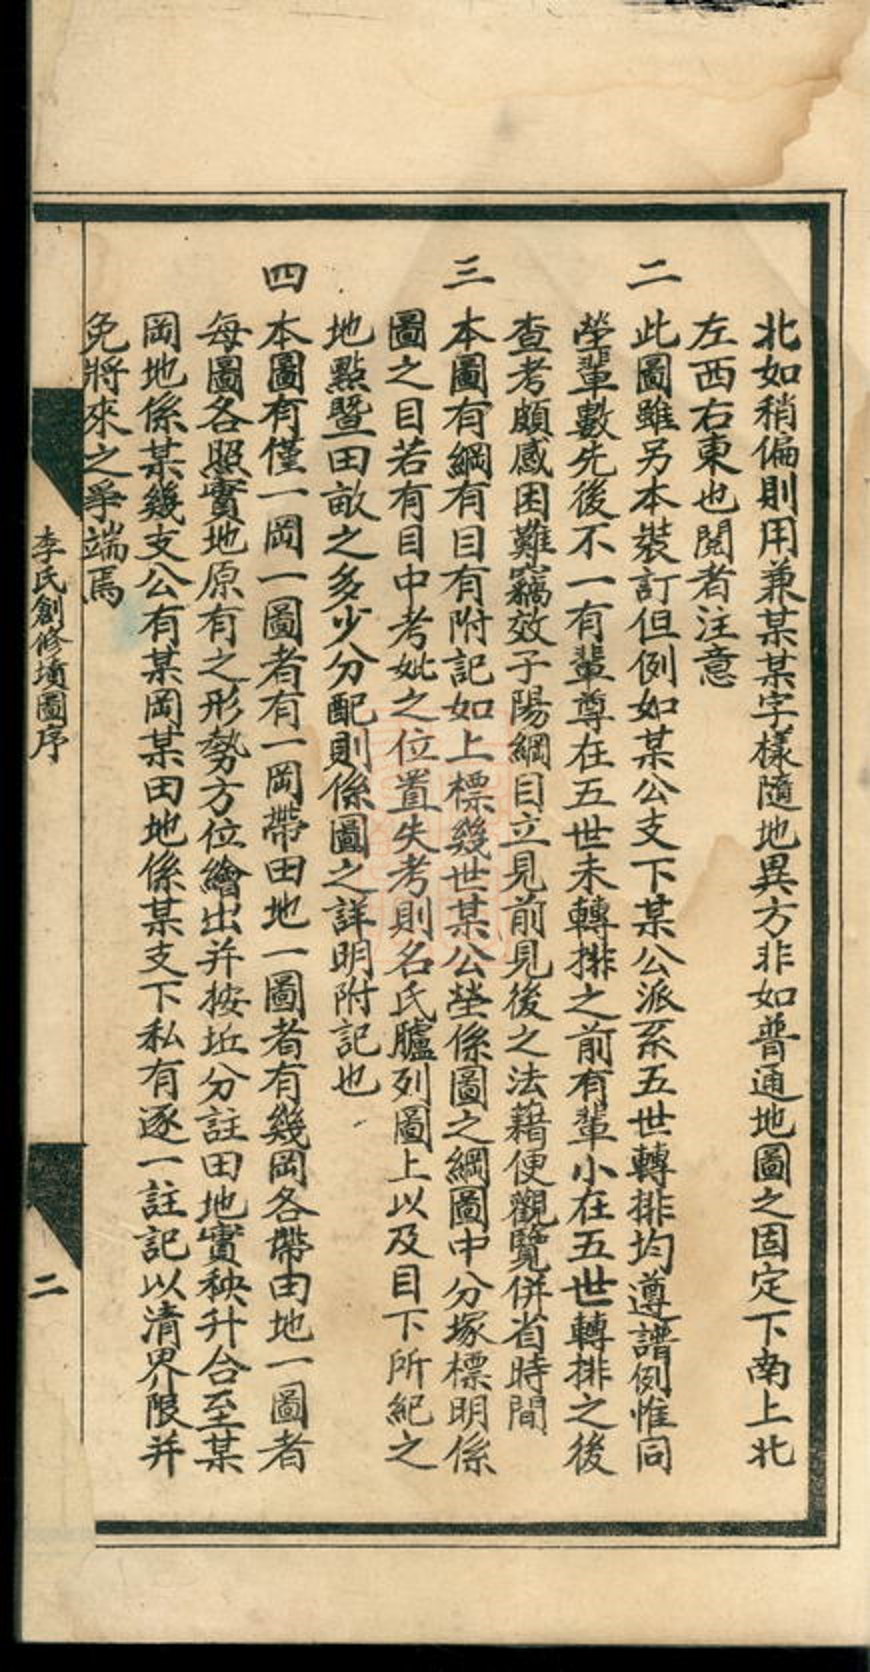 北如稍偏則用兼某某字樣隨地異方非如普通地圖之固定下南上北
左西右東也閱者注意
二 此圖雖另本裝訂但例如某公支下某公派系五世轉排均遵譜例惟同
塋輩數先後不一有輩尊在五世未轉排之前有輩小在五世轉排之後
查考頗感困難竊效子陽綱目立見前見後之法藉便觀覽併省時間
三 本圖有綱有目有附記如上標幾世某公塋係圖之綱圖中分塚標明係
圖之目若有目中考妣之位置失考則名氏臚列圖上以及目下所紀之
地點暨田畝之多少分配則係圖之詳明附記也
四 本圖有僅一岡一圖者有一岡帶田地一圖者有幾岡各帶由地一圖者
每圖各照實地原有之形勢方位繪出并按坵分註田地實秧升合至某
岡地係某幾支公有某岡某田地係某支下私有逐一註記以清界限并
免將來之爭端焉
李氏創修墳圖序
二